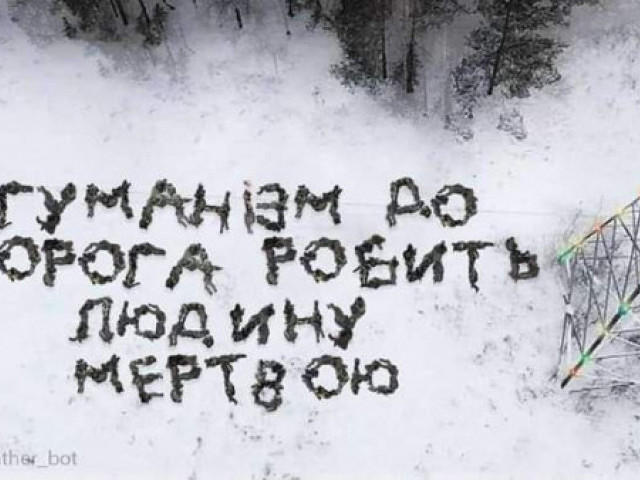 ГУМАНІЗМ ДО
ОРОГА РОБИТЬ
ЛЮДИНУ
МЕРТВОЮ
ther_bot